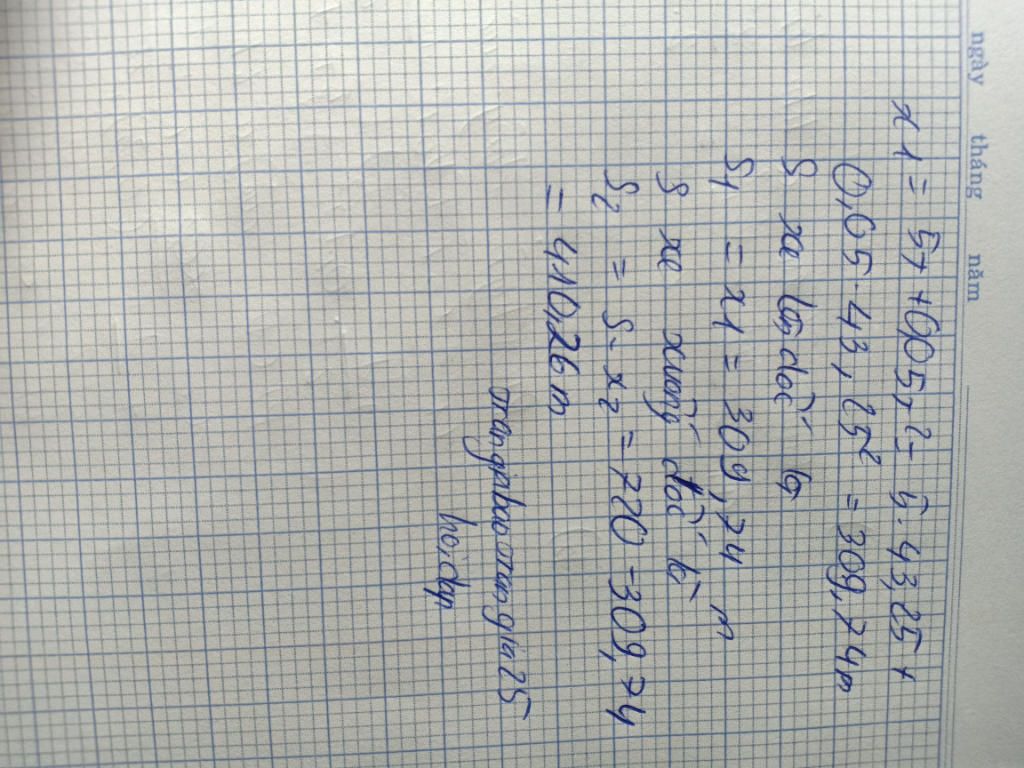 ngày tháng năm
x1 = 5t + 0,05t² = 5.43,25 +
0,05.43,25² = 309,74m
S xe lên dốc là
S1 = x1 = 309,74 m
S xe xuống dốc là
S2 = S - x2 = 720 - 309,74
= 410,26 m
hỏi đáp